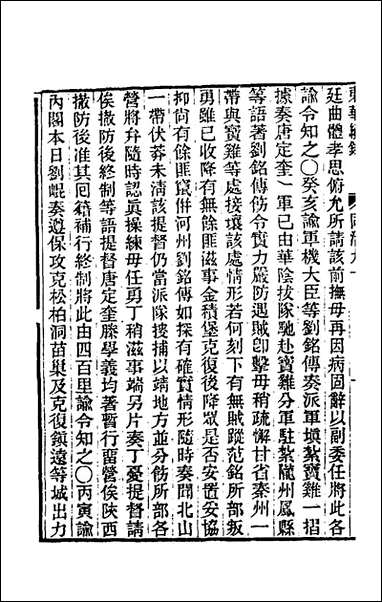 東華續錄
同治九十
廷曲體孝思俯允所請該前撫毋再因病固辭以副委任將此各
諭令知之〇癸亥諭軍機大臣等劉銘傳奏派軍填紮寶雞一摺
據奏唐定奎一軍已由華陰拔隊馳赴寶雞分軍駐紮隴州鳳縣
等語著劉銘傳飭令實力嚴防遇賊卽擊毋稍疏懈甘省秦州一
帶與寶雞等處接壤該處情形若何刻下有無賊蹤范銘所部叛
勇雖已收降有無餘匪滋事金積堡克復後降眾是否安置妥協
抑尚有餘匪竄倂河州劉銘傳如探有確實情形隨時奏聞北山
一帶伏莽未清該提督仍當派隊搜捕以靖地方並分飭所部各
營將弁隨時認眞操練毋任勇丁稍滋事端另片奏丁憂提督請
俟撤防後終制等語提督唐定奎滕學義均著暫行留營俟陝西
撤防後准其回籍補行終制將此由四百里諭令知之〇丙寅諭
內閣本日劉崐奏遵保攻克松柏洞苗巢及克復鎮遠等城出力